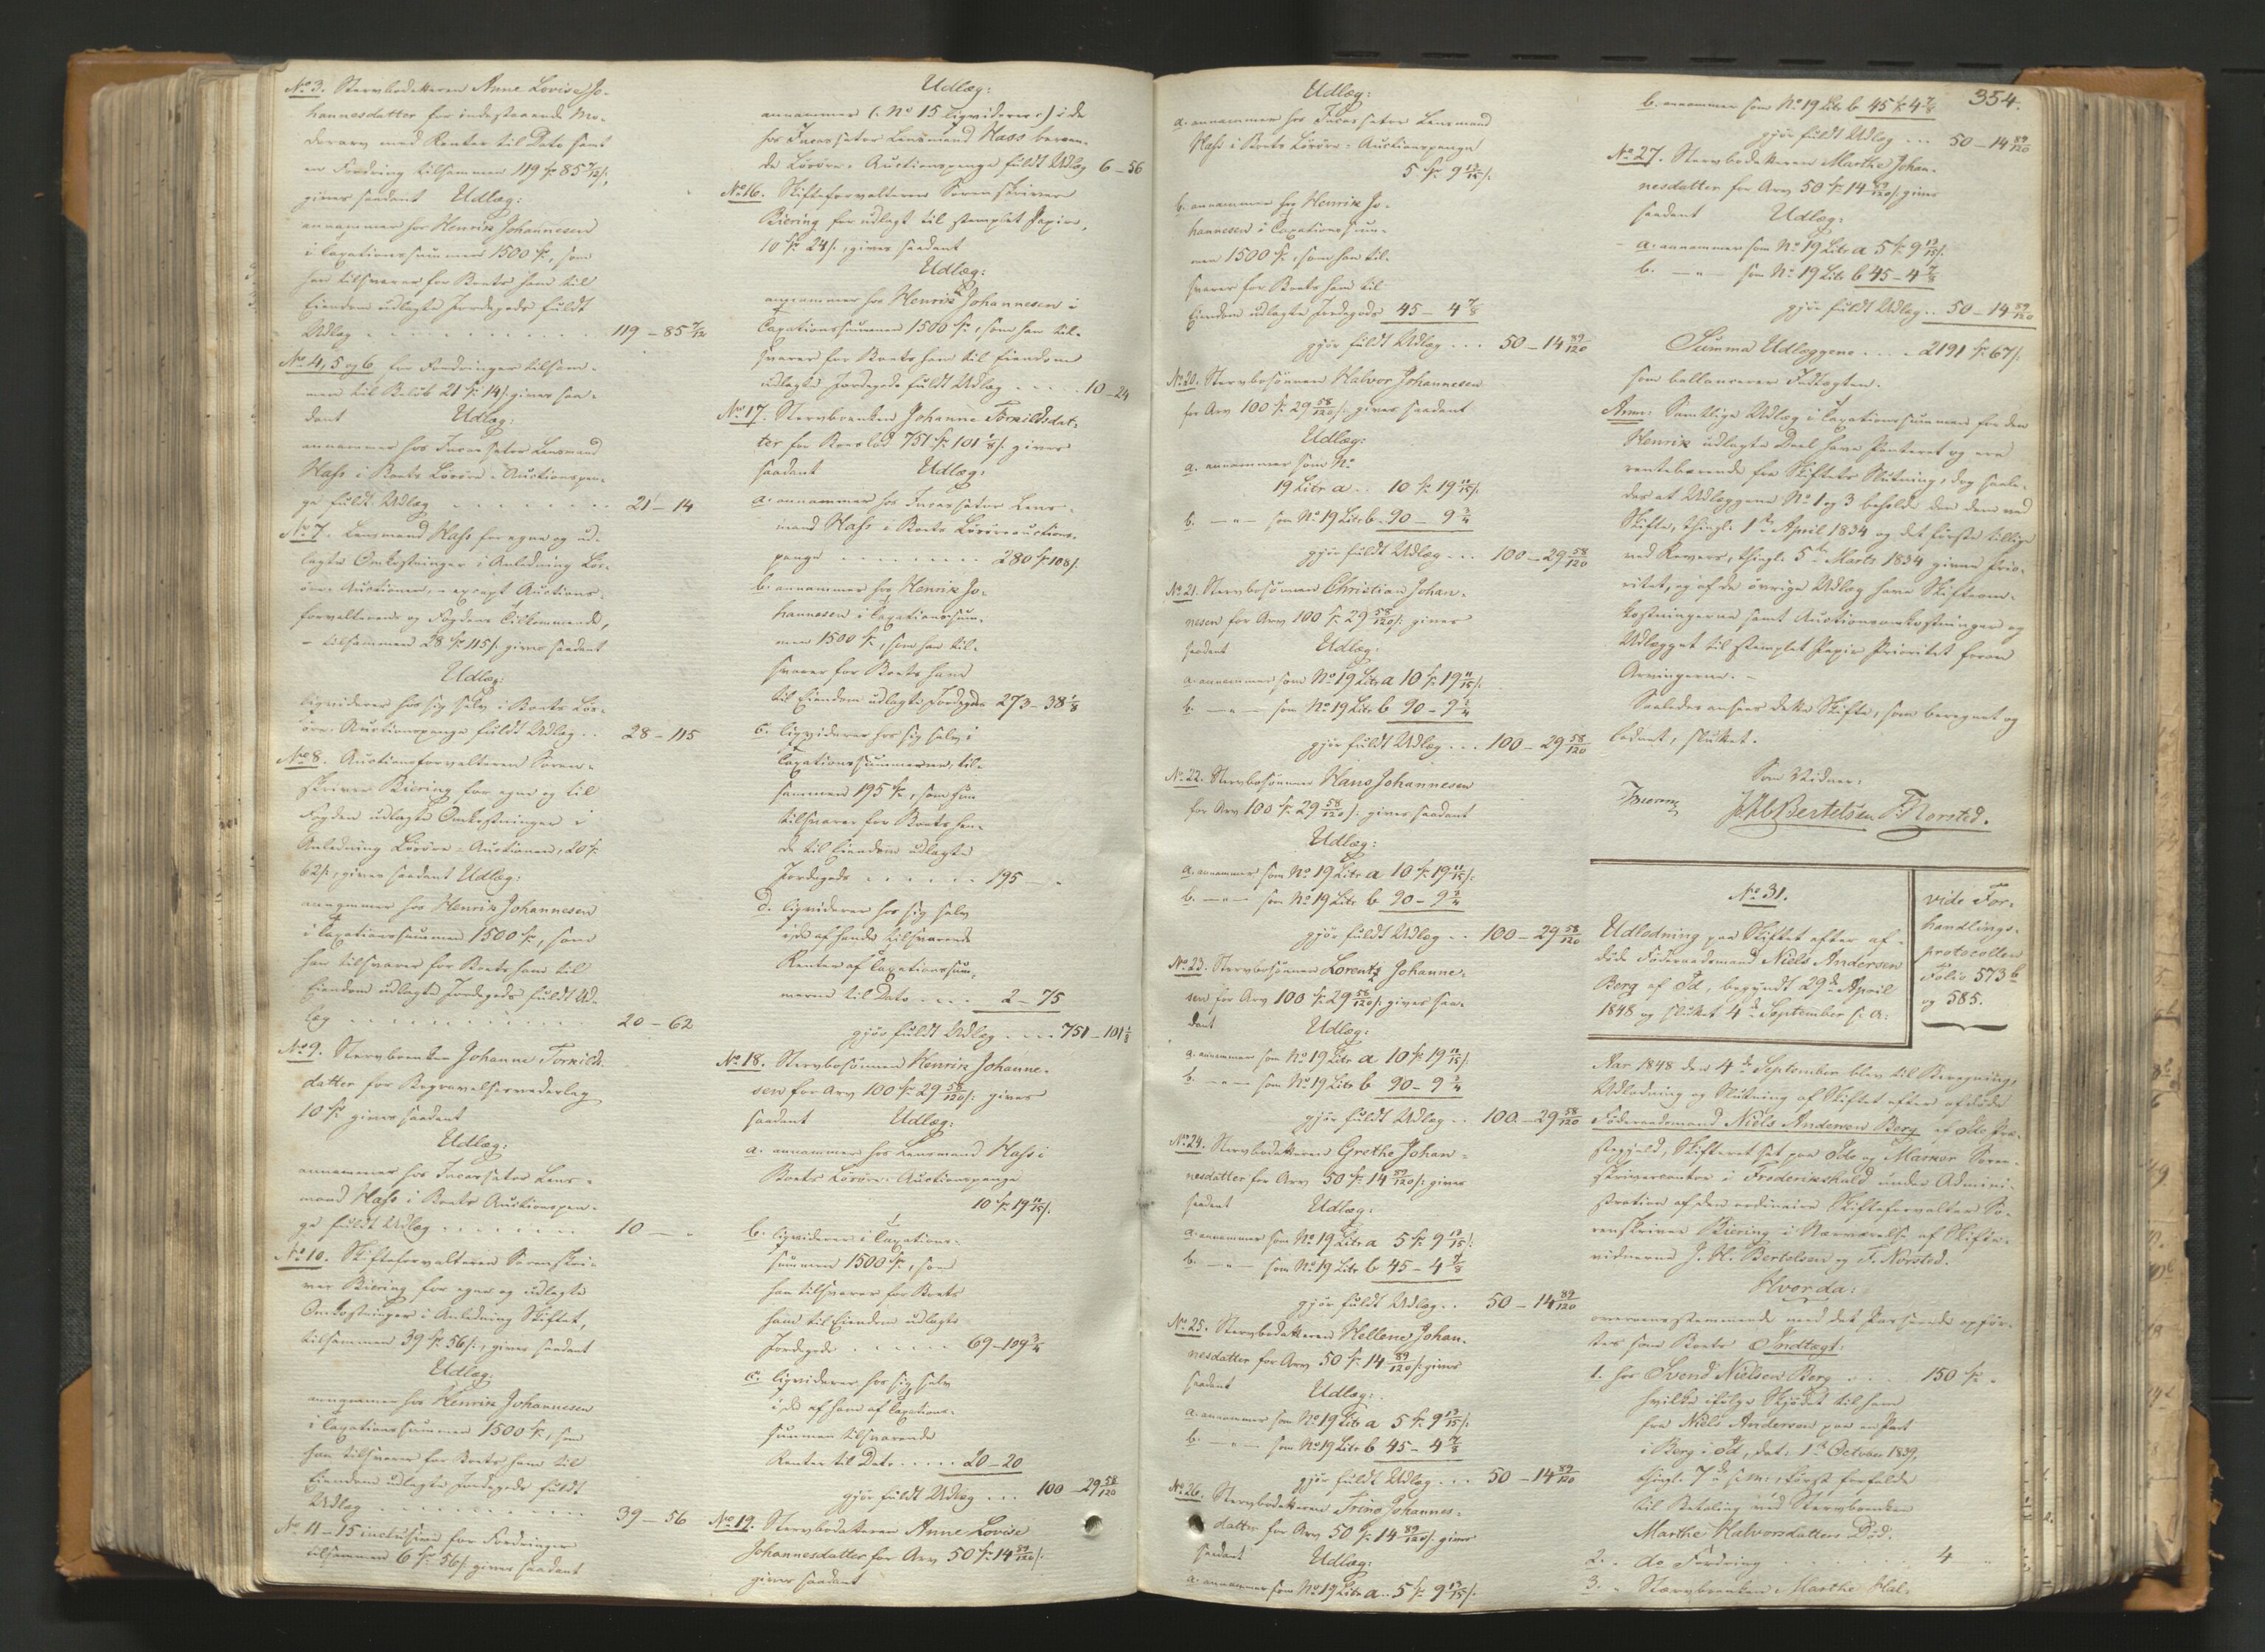 No 3. Stervbodatteren Anne Lovise Jo-
hannesdatter for indestaaende Mo-
derarv med Renter til Dato samt
en Fordring tilsammen 119 Sp 85 7/12 s,
gives saadant Udlæg:
annammer hos Henrik Johannesen
i Taxationssummen 1500 Sp, som
han tilsvarer for Boets ham til
Eiendom udlagte Jordegods fuldt
Udlæg . . . . . . . . 119 – 85 7/12
No 4, 5 og 6 for Fordringer tilsam-
men til Beløb 21 Sp 14 s gives saa-
dant Udlæg:
annammer hos Incassator Lensmand
Hass i Boets Løsøre-Auctionspen-
ge fuldt Udlæg . . . . . . . 21 – 14
No 7. Lensmand Hass for egne og ud-
lagte Omkostninger i Anledning Løs-
øre-Auctionen, – except Auctions-
forvalterens og Fogdens Tilkommende,
– tilsammen 28 Sp 115 s gives saadant
Udlæg:
liqviderer hos sig selv i Boets Løs-
øre-Auctionspenge fuldt Udlæg . . 28 – 115
No 8. Auctionsforvalteren Soren-
skriver Biering for egne og til
Fogden udlagte Omkostninger i
Anledning Løsøre-Auctionen, 20 Sp
62 s, gives saadant Udlæg:
annammer hos Henrik Johannesen
i Taxationssummen 1500 Sp, som
han tilsvarer for Boets ham til
Eiendom udlagte Jordegods fuldt Ud-
læg . . . . . . . . . . 20 – 62
No 9. Stervboenken Johanne Torkilds-
datter for Begravelsesvederlag
10 Sp gives saadant
Udlæg:
annammer hos Incassator Lens-
mand Hass i Boets Auctionspen-
ge fuldt Udlæg . . . . . . . 10 – "
No 10. Skifteforvalteren Sorenskri-
ver Biering for egne og udlagte
Omkostninger i Anledning Skiftet,
tilsammen 39 Sp 56 s, gives saadant
Udlæg:
annammer hos Henrik Johannesen
i Taxationssummen 1500 Sp, som
han tilsvarer for Boets ham til
Eiendom udlagte Jordegods fuldt
Udlæg . . . . . . . . . 39 – 56
No 11–15 inclusive for Fordringer
tilsammen 6 Sp 56 s gives saadant
Udlæg:
annammer (: No 15 liqviderer :) i de
hos Incassator Lensmand Hass beroen-
de Løsøre-Auctionspenge fuldt Udlæg 6 – 56
No 16. Skifteforvalteren Sorenskriver
Biering for udlagt til stemplet Papir,
10 Sp 24 s, gives saadant
Udlæg:
annammer hos Henrik Johannesen i
Taxationssummen 1500 Sp, som han til-
svarer for Boets ham til Eiendom
udlagte Jordegods fuldt Udlæg . . . . 10 – 24
No 17. Stervboenken Johanne Torkildsdat-
ter for Boeslod 751 Sp 101 1/8 s gives
saadant Udlæg:
a. annammer hos Incassator Lens-
mand Hass i Boets Løsøreauctions-
penge . . . . . . . 280 Sp 108 s
b. annammer hos Henrik Jo-
hannesen i Taxationssum-
men 1500 Sp, som han til-
svarer for Boets ham
til Eiendom udlagte Jordegods 273 – 38 1/8
c. liqviderer hos sig selv i
Taxationssummerne, til-
sammen 195 Sp, som hun
tilsvarer for Boets hen-
de til Eiendom udlagte
Jordegods . . . . . . 195 – "
d. liqviderer hos sig selv
i de af hende tilsvarende
Renter af Taxationssum-
merne til Dato . . . . 2 – 75
gjør fuldt Udlæg . . . . 751 – 101 1/8
No 18. Stervbosønnen Henrik Johanne-
sen for Arv 100 Sp 29 58/120 s gives
saadant Udlæg:
a. annammer hos Lensmand Hass i
Boets Løsøre-Auctionspenge
10 Sp 19 11/15 s
b. liqviderer i Taxations-
summen 1500 Sp, som
han tilsvarer for Boets
ham til Eiendom udlagte
Jordegods . . . . . . 69 – 109 3/4
c. liqviderer hos sig selv
i de af ham af Taxations-
summen tilsvarende
Renter til Dato . . . . . 20 – 20
gjør fuldt Udlæg . . . 100 – 29 58/120
No 19. Stervbodatteren Anne Lovise
Johannesdatter for Arv 50 Sp 14 89/120 s
gives saadant
Udlæg:
a. annammer hos Incassator Lensmand
Hass i Boets Løsøre-Auctionspenge
5 Sp 9 13/15 s
b. annammer hos Henrik Jo-
hannesen i Taxationssum-
men 1500 Sp, som han til-
svarer for Boets ham til
Eiendom udlagte Jordegods 45 – 4 7/8
gjør fuldt Udlæg . . . 50 – 14 89/120
No 20. Stervbosønnen Halvor Johannesen
for Arv 100 Sp 29 58/120 s, gives saadant
Udlæg:
a. annammer som No
19 Litr a . . 10 Sp 19 11/15 s
b. – " – som No 19 Litr b. 90 – 9 3/4
gjør fuldt Udlæg . . . 100 – 29 58/120
No 21. Stervbosønnen Christian Johan-
nesen for Arv 100 Sp 29 58/120 s gives
saadant Udlæg:
a. annammer som No 19 Litr a 10 Sp 19 11/15 s
b. – " – som No 19 Litr b 90 – 9 3/4
gjør fuldt Udlæg . . . 100 – 29 58/120
No 22. Stervbosønnen Hans Johannesen
for Arv 100 Sp 29 58/120 s gives saadant
Udlæg:
a. annammer som No 19 Litr a 10 Sp 19 11/15 s
b. – " – som No 19 Litr b 90 – 9 3/4
gjør fuldt Udlæg . . 100 – 29 58/120
No 23. Stervbosønnen Lorentz Johanne-
sen for Arv 100 Sp 29 58/120 s gives saa-
dant Udlæg:
a. annammer som No 19 Litr a 10 Sp 19 11/15 s
b. – " – som No 19 Litr b 90 – 9 3/4
gjør fuldt Udlæg . . 100 – 29 58/120
No 24. Stervbodatteren Grethe Johan-
nesdatter for Arv 50 Sp 14 89/120 s gives
saadant Udlæg:
a. annammer som No 19 Litr a 5 Sp 9 13/15 s
b. – " – som No 19 Litr b 45 – 4 7/8
gjør fuldt Udlæg . . 50 – 14 89/120
No 25. Stervbodatteren Hellene Johan-
nesdatter for Arv 50 Sp 14 89/120 s gives
saadant Udlæg:
a. annammer som No 19 Litr a 5 Sp 9 13/15 s
b. – " – som No 19 Litr b 45 – 4 7/8
gjør fuldt Udlæg . . . 50 – 14 89/120
No 26. Stervbodatteren Trine Johannes-
datter for Arv 50 Sp 14 89/120 s gives
saadant Udlæg:
a. annammer som No 19 Litr a . . 5 Sp 9 13/15 s
354.
b. annammer som No 19 Litr b 45 Sp 4 7/8
gjør fuldt Udlæg . . . 50 – 14 89/120
No 27. Stervbodatteren Marthe Johan-
nesdatter for Arv 50 Sp 14 89/120 s gives
saadant Udlæg:
a. annammer som No 19 Litr a 5 Sp 9 13/15 s
b. – " – som No 19 Litr b 45 – 4 7/8
gjør fuldt Udlæg . . 50 – 14 89/120
Summa Udlæggene . . . . 2191 Sp 67 s
som ballancerer Indtægten.
Anm: Samtlige Udlæg i Taxationssummen for den
Henrik udlagte Deel have Panteret og ere
rentebærende fra Skiftets Slutning, dog saale-
des at Udlæggene No 1 og 3 beholde den dem ved
Skifte, thingl. 1ste April 1834 og det første tillige
ved Revers, thingl. 5te Marts 1834 givne Prio-
ritet, og af de øvrige Udlæg have Skifteom-
kostningerne samt Auctionsomkostninger og
Udlægget til stemplet Papir Prioritet foran
Arvingerne. –
Saaledes ansees dette Skifte, som beregnet og
lodnet, sluttet.
Som Vidner:
Biering
J H Bertelsen F. Norsted.
No 31.
Udlodning paa Skiftet efter af-
døde Føderaadsmand Niels Andersen
Berg af Id, begyndt 29de April
1848 og sluttet 4de September s. A:
vide For-
handlings-
protocollen
Folio 573 b
og 585.
Aar 1848 den 4de September blev til Beregning,
Udlodning og Slutning af Skiftet efter afdøde
Føderaadsmand Niels Andersen Berg af Ids Præ-
stegjeld, Skifteret sat paa Ide og Marker Soren-
skrivercontor i Frederikshald under Admini-
stration af den ordinaire Skifteforvalter So-
renskriver Biering i Nærværelse af Skifte-
vidnerne J. H. Bertelsen og F. Norsted.
Hvorda:
overensstemmende med det Passerede opfør-
tes som Boets Indtægt:
1. hos Svend Nielsen Berg . . . 150 Sp "
hvilke ifølge Skjødet til ham
fra Niels Andersen paa en Part
i Berg i Id, dat: 1ste October 1839,
thingl. 7de s. M:, først forfalde
til Betaling ved Stervboenken
Marthe Halvorsdatters Død.
2. " do Fordring . . . . . . 4 "
3. " Stervboenken Marthe Hal-